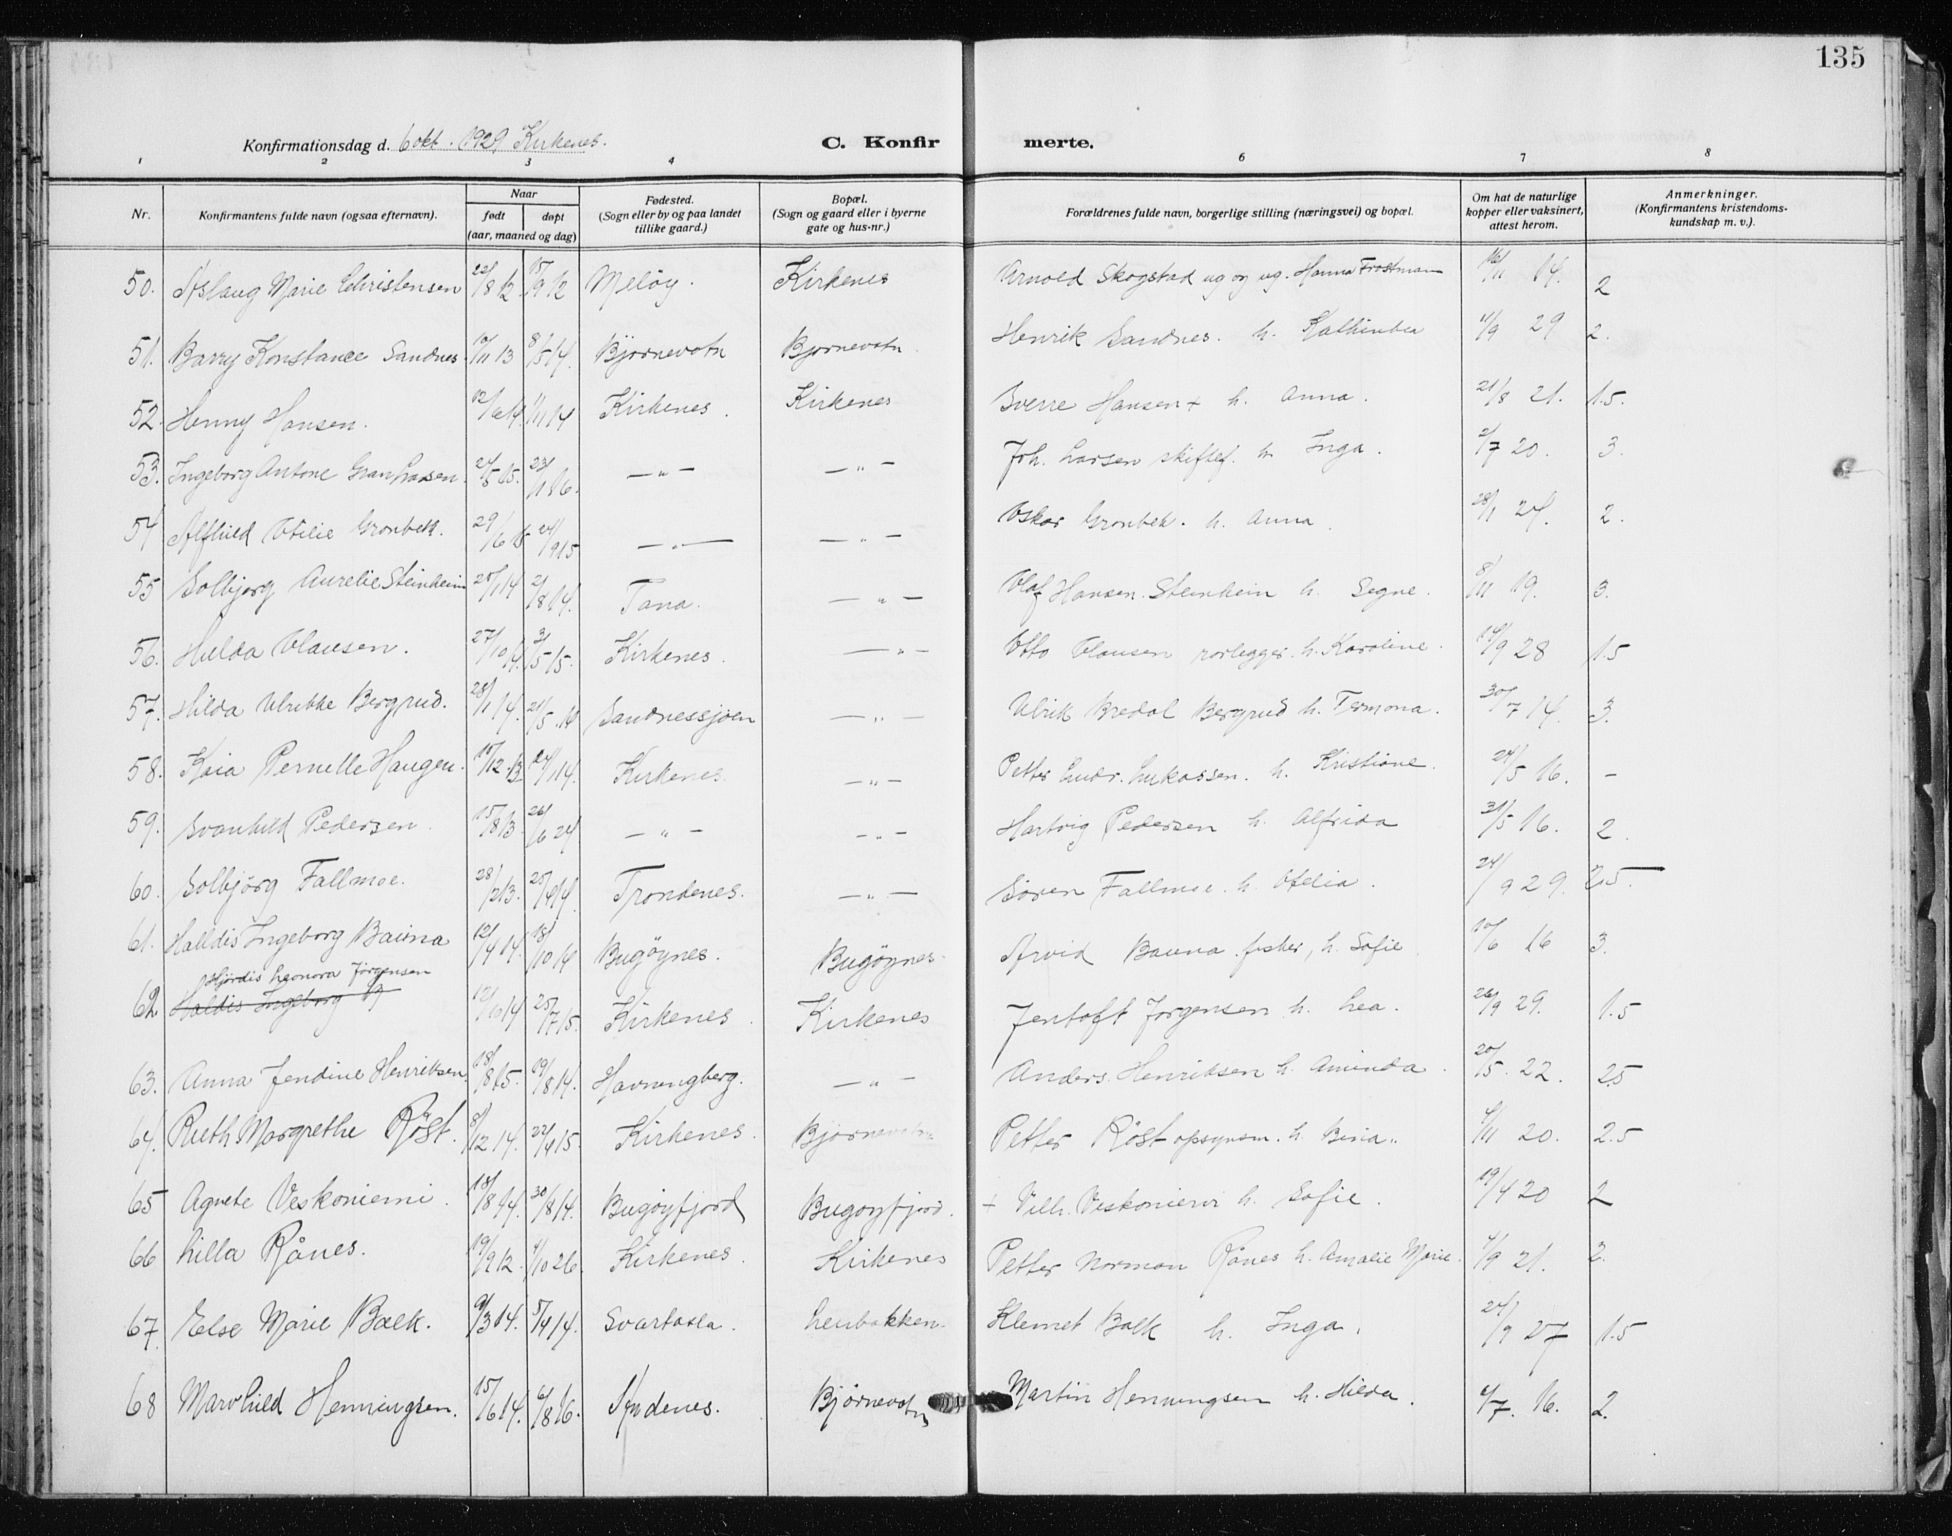 135
Konfirmationsdag d. 6 okt. 1929 Kirkenes.
C. Konfirmerte.
1 2 3 4 6 7 8
Nr. Konfirmantens fulde navn (ogsaa efternavn). Naar født døpt (aar, maaned og dag) Fødested. (Sogn eller by og paa landet tillike gaard.) Bopæl. (Sogn og gaard eller i byerne gate og hus-nr.) Forældrenes fulde navn, borgerlige stilling (næringsvei) og bopæl. Om hat de naturlige kopper eller vaksinert, attest herom. Anmerkninger. (Konfirmantens kristendoms-kundskap m. v.).
50. Aslaug Marie Christensen 22/8 12 15/9 12 Meløy. Kirkenes Arnold Skogstad ug og ug. Hanna Frostman 16/11 14. 2
51. Barry Konstance Sandnes 10/11 13 8/5 14. Bjørnevatn Bjørnevatn Henrik Sandnes. h. Kathinka 11/9 29 2.
52. Henny Hansen. 12/6 14. 1/11 14 Kirkenes. Kirkenes Sverre Hansen + h. Anna. 21/8 21. 1.5.
53. Ingeborg Antone Gran Larsen. 24/5 15. 23/1 16. — " — — " — Joh. Larsen skiftef. h. Inga. 2/7 20. 3.
54 Alfhild Otilie Grønbek. 29/6 15 24/9 15 — " — — " — Oskar Grønbek. h. Anna. 28/1 24. 2.
55 Solbjørg Aurelie Steinheim 20/1 14 2/8 14. Tana. — " — Olaf Hansen Steinheim h. Segne. 8/11 19. 3.
56. Hilda Olausen. 27/10 14. 3/5 15. Kirkenes. — " — Otto Olausen rørlegger. h. Karoline. 14/9 28 1.5
57. Hilda Ulrikke Bergrud. 28/1 14. 21/5 14 Sandnessjøen — " — Ulrik Bredal Bergrud h. Termona. 30/7 14. 3.
58. Kaia Pernelle Haugen. 15/12 13 24/1 14. Kirkenes. — " — Petter Ludr. Lukassen. h. Kristiane. 24/5 16. –
59. Svanhild Pedersen. 15/8 13. 26/6 24 — " — — " — Hartvig Pedersen h. Alfrida 31/5 16. 2.
60. Solbjørg Fallmoe. 28/2 13. 25/4 14 Trondenes. — " — Søren Fallmoe. h. Ofelia. 24/9 29. 2.5.
61. Halldis Ingeborg Bauna 12/4 14. 18/10 14 Bugøynes. Bugøynes. Arvid Bauna fisker, h. Sofie 10/6 16 3.
Hjørdis Leonora Jørgensen
62 Haldis Ingeborg B 12/10 14 25/7 15. Kirkenes. Kirkenes Jentoft Jørgensen h. Lea. 26/9 29. 1.5
63. Anna Jendine Henriksen. 18/8 15. 19/8 14. Havningberg. — " — Anders Henriksen h. Aminda. 20/5. 22. 2.5
64. Ruth Margrethe Røst. 8/12 14. 22/4 15. Kirkenes. Bjørnevatn Petter Røst opsynsm. h. Bina. 4/11 20. 2.5
65 Agnete Veskoniemi. 18/8 14. 30/8 14. Bugøyfjord Bugøyfjord. + Vilh. Veskoniemi h. Sofie. 19/4 20 2
66 Lilla Rånes. 19/9 12. 4/10 26. Kirkenes. Kirkenes Petter Norman Rånes h. Amalie Marie. 4/9 21. 2.
67. Else Marie Balk. 9/3 14. 5/4 14. Svartaala. Leubakken. Klemet Balk h. Inga. 24/9 27 1.5
68 Marvhild Henningsen. 15/6 14. 6/8 16. Indenes. Bjørnevatn Martin Henningsen h. Hilda. 4/7. 16. 2.